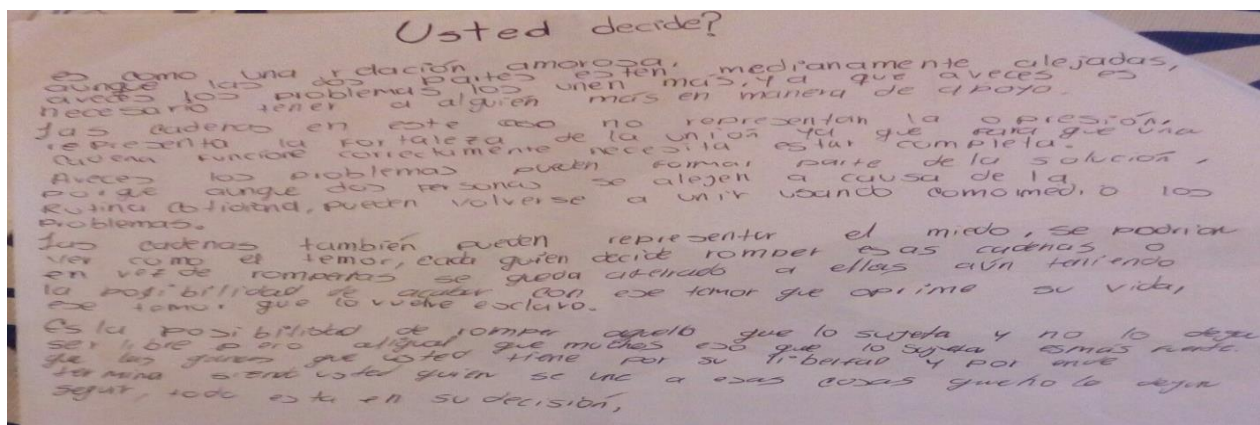 Usted decide?
es como una relación amorosa,
aunque las dos partes estén medianamente alejadas,
aveces los problemas los unen más, ya que aveces es
necesario tener a alguien más en manera de apoyo.
Las cadenas en este caso no representan la opresión,
representa la fortaleza de la unión ya que para que una
cadena funcione correctamente necesita estar completa.
Aveces los problemas pueden formar parte de la solución,
porque aunque dos personas se alejen a causa de la
rutina cotidiana, pueden volverse a unir usando como medio los
problemas.
Las cadenas también pueden representar el miedo, se podrían
ver como el temor, cada quien decide romper esas cadenas o
en vez de romperlas se queda aterrado a ellas aún teniendo
la posibilidad de acabar con ese temor que oprime su vida,
ese temor que lo vuelve esclavo.
Es la posibilidad de romper aquello que lo sujeta y no lo deja
ser libre pero aligual que muchos eso que lo sujeta es más fuerte
que las ganas que usted tiene por su libertad y por ende
termina siendo usted quien se une a esas cosas que no lo dejan
seguir, todo esta en su decisión,